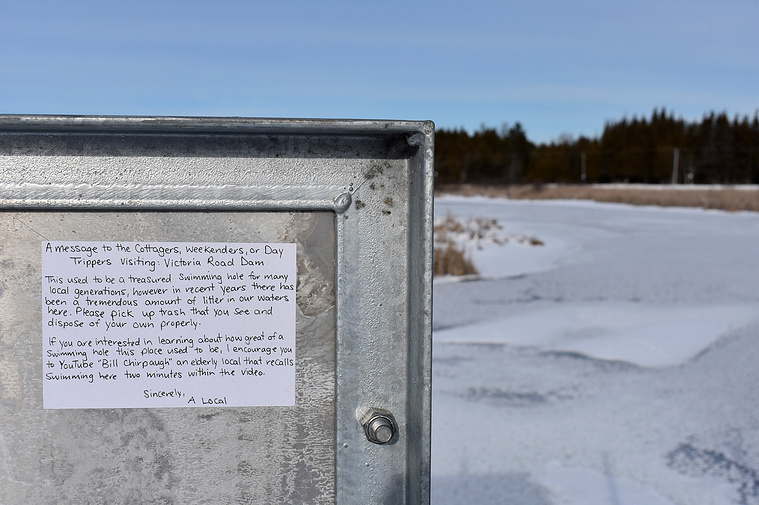 A message to the Cottagers, Weekenders, or Day
Trippers Visiting: Victoria Road Dam
This used to be a treasured Swimming hole for many
local generations, however in recent years there has
been a tremendous amount of litter in our waters
here. Please pick up trash that you see and
dispose of your own properly.
If you are interested in learning about how great of a
Swimming hole this place used to be, I encourage you
to YouTube "Bill Chirpaugh" an elderly local that recalls
Swimming here two minutes within the video.
Sincerely,
A Local